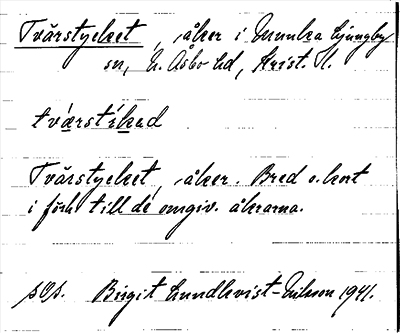 Tvärstycket, åker i Munka Ljungby
sn, N. Åsbo hd, Krist. l.
tvǽrstíkəd
Tvärstycket, åker. Bred o. kort
i förh till de omgiv. åkrarna.
sOs. Birgit Lundkvist-Erilsson 1941.